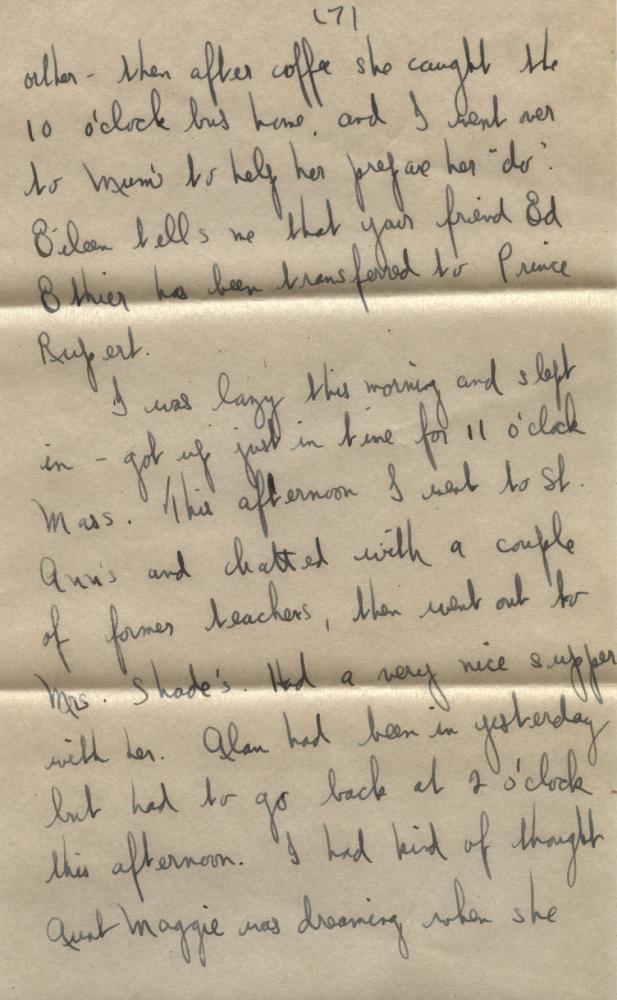 (7)
other - then after coffee she caught the
10 o'clock bus home, and I went over
to Mum's to help her prepare her "do".
Eileen tells me that your friend Ed
Ethier has been transferred to Prince
Rupert.
I was lazy this morning and slept
in - got up just in time for 11 o'clock
Mass. This afternoon I went to St.
Ann's and chatted with a couple
of former teachers, then went out to
Mrs. Shade's. Had a very nice supper
with her. Alan had been in yesterday
but had to go back at 2 o'clock
this afternoon. I had kind of thought
Aunt Maggie was dreaming when she